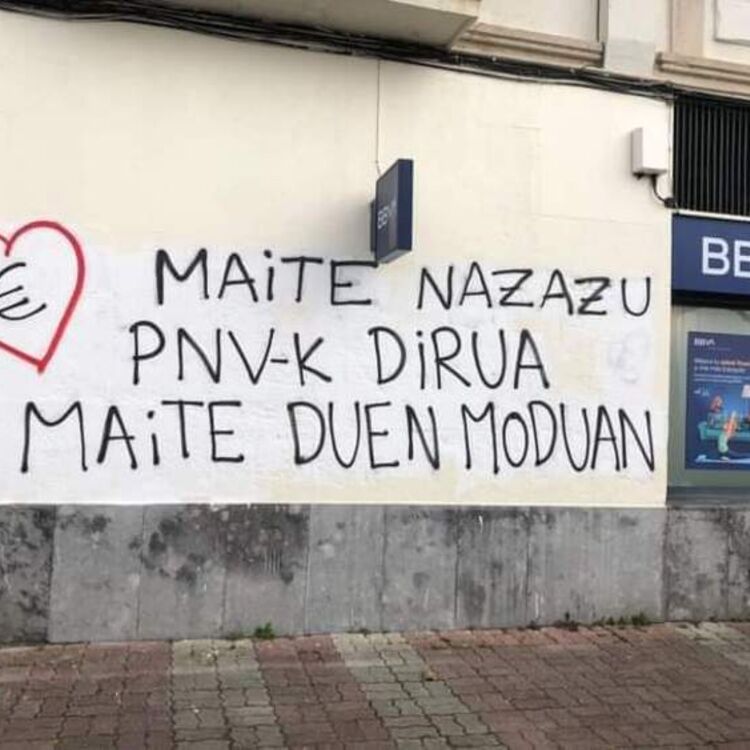 BBVA
€ MAiTE NAZAZU
PNV-K DiRUA
MAiTE DUEN MODUAN
BB
BBVA